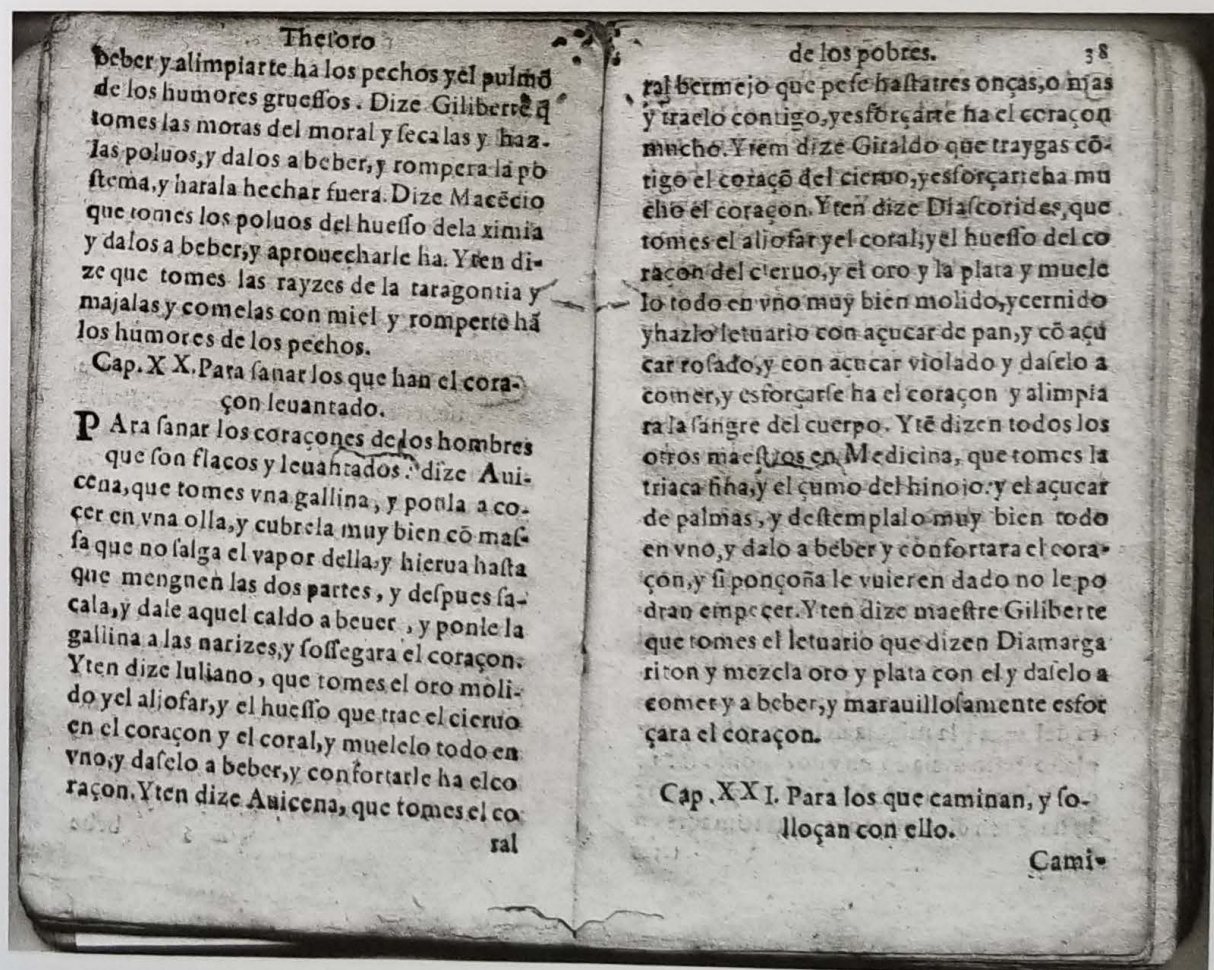 Thesoro
beber y alimpiarte ha los pechos yel pulmõ
de los humores gruessos. Dize Giliberte q̃
tomes las moras del moral y seca las y haz-
las poluos, y dalos a beber, y rompera la po
stema, y harala hechar fuera. Dize Macẽcio
que tomes los poluos del huesso dela ximia
y dalos a beber, y aprouecharle ha. Yten di-
ze que tomes las rayzes de la taragontia y
majalas y comelas con miel y romperte hã
los humores de los pechos.
Cap. XX. Para sanar los que han el cora-
çon leuantado.
PAra sanar los coraçones de los hombres
que son flacos y leuantados: dize Aui-
cena, que tomes vna gallina, y ponla a co-
çer en vna olla, y cubrela muy bien cõ mas-
sa que no salga el vapor della, y hierua hasta
que menguen las dos partes, y despues sa-
cala, y dale aquel caldo a beuer, y ponle la
gallina a las narizes, y sossegara el coraçon.
Yten dize Iuliano, que tomes el oro moli-
do yel aljofar, y el huesso que trae el cieruo
en el coraçon y el coral, y muelelo todo en
vno, y daselo a beber, y confortarle ha elco
raçon. Yten dize Auicena, que tomes el co
ral
de los pobres. 38
ral bermejo que pese hasta tres onças, o mas
y traelo contigo, yesforçarte ha el coraçon
mucho. Ytem dize Giraldo que traygas cõ-
tigo el coraçõ del cieruo, yesforçarteha mu
cho el coraçon. Yten dize Diascorides, que
tomes el aljofar yel coral, yel huesso del co
raçon del cieruo, y el oro y la plata y muele
lo todo en vno muy bien molido, ycernido
yhazlo letuario con açucar de pan, y cõ açu
car rosado, y con açucar violado y daselo a
comer, y esforçarse ha el coraçon y alimpia
ra la sangre del cuerpo. Ytẽ dizen todos los
otros maestros en Medicina, que tomes la
triaca fina, y el çumo del hinojo: y el açucar
de palmas, y destemplalo muy bien todo
en vno, y dalo a beber y confortara el cora-
çon, y si ponçoña le vuieren dado no le po
dran empeçer. Yten dize maestre Giliberte
que tomes el letuario que dizen Diamarga
riton y mezcla oro y plata con el y daselo a
comer y a beber, y marauillosamente esfor
çara el coraçon.
Cap. XXI. Para los que caminan, y so-
lloçan con ello.
Cami-